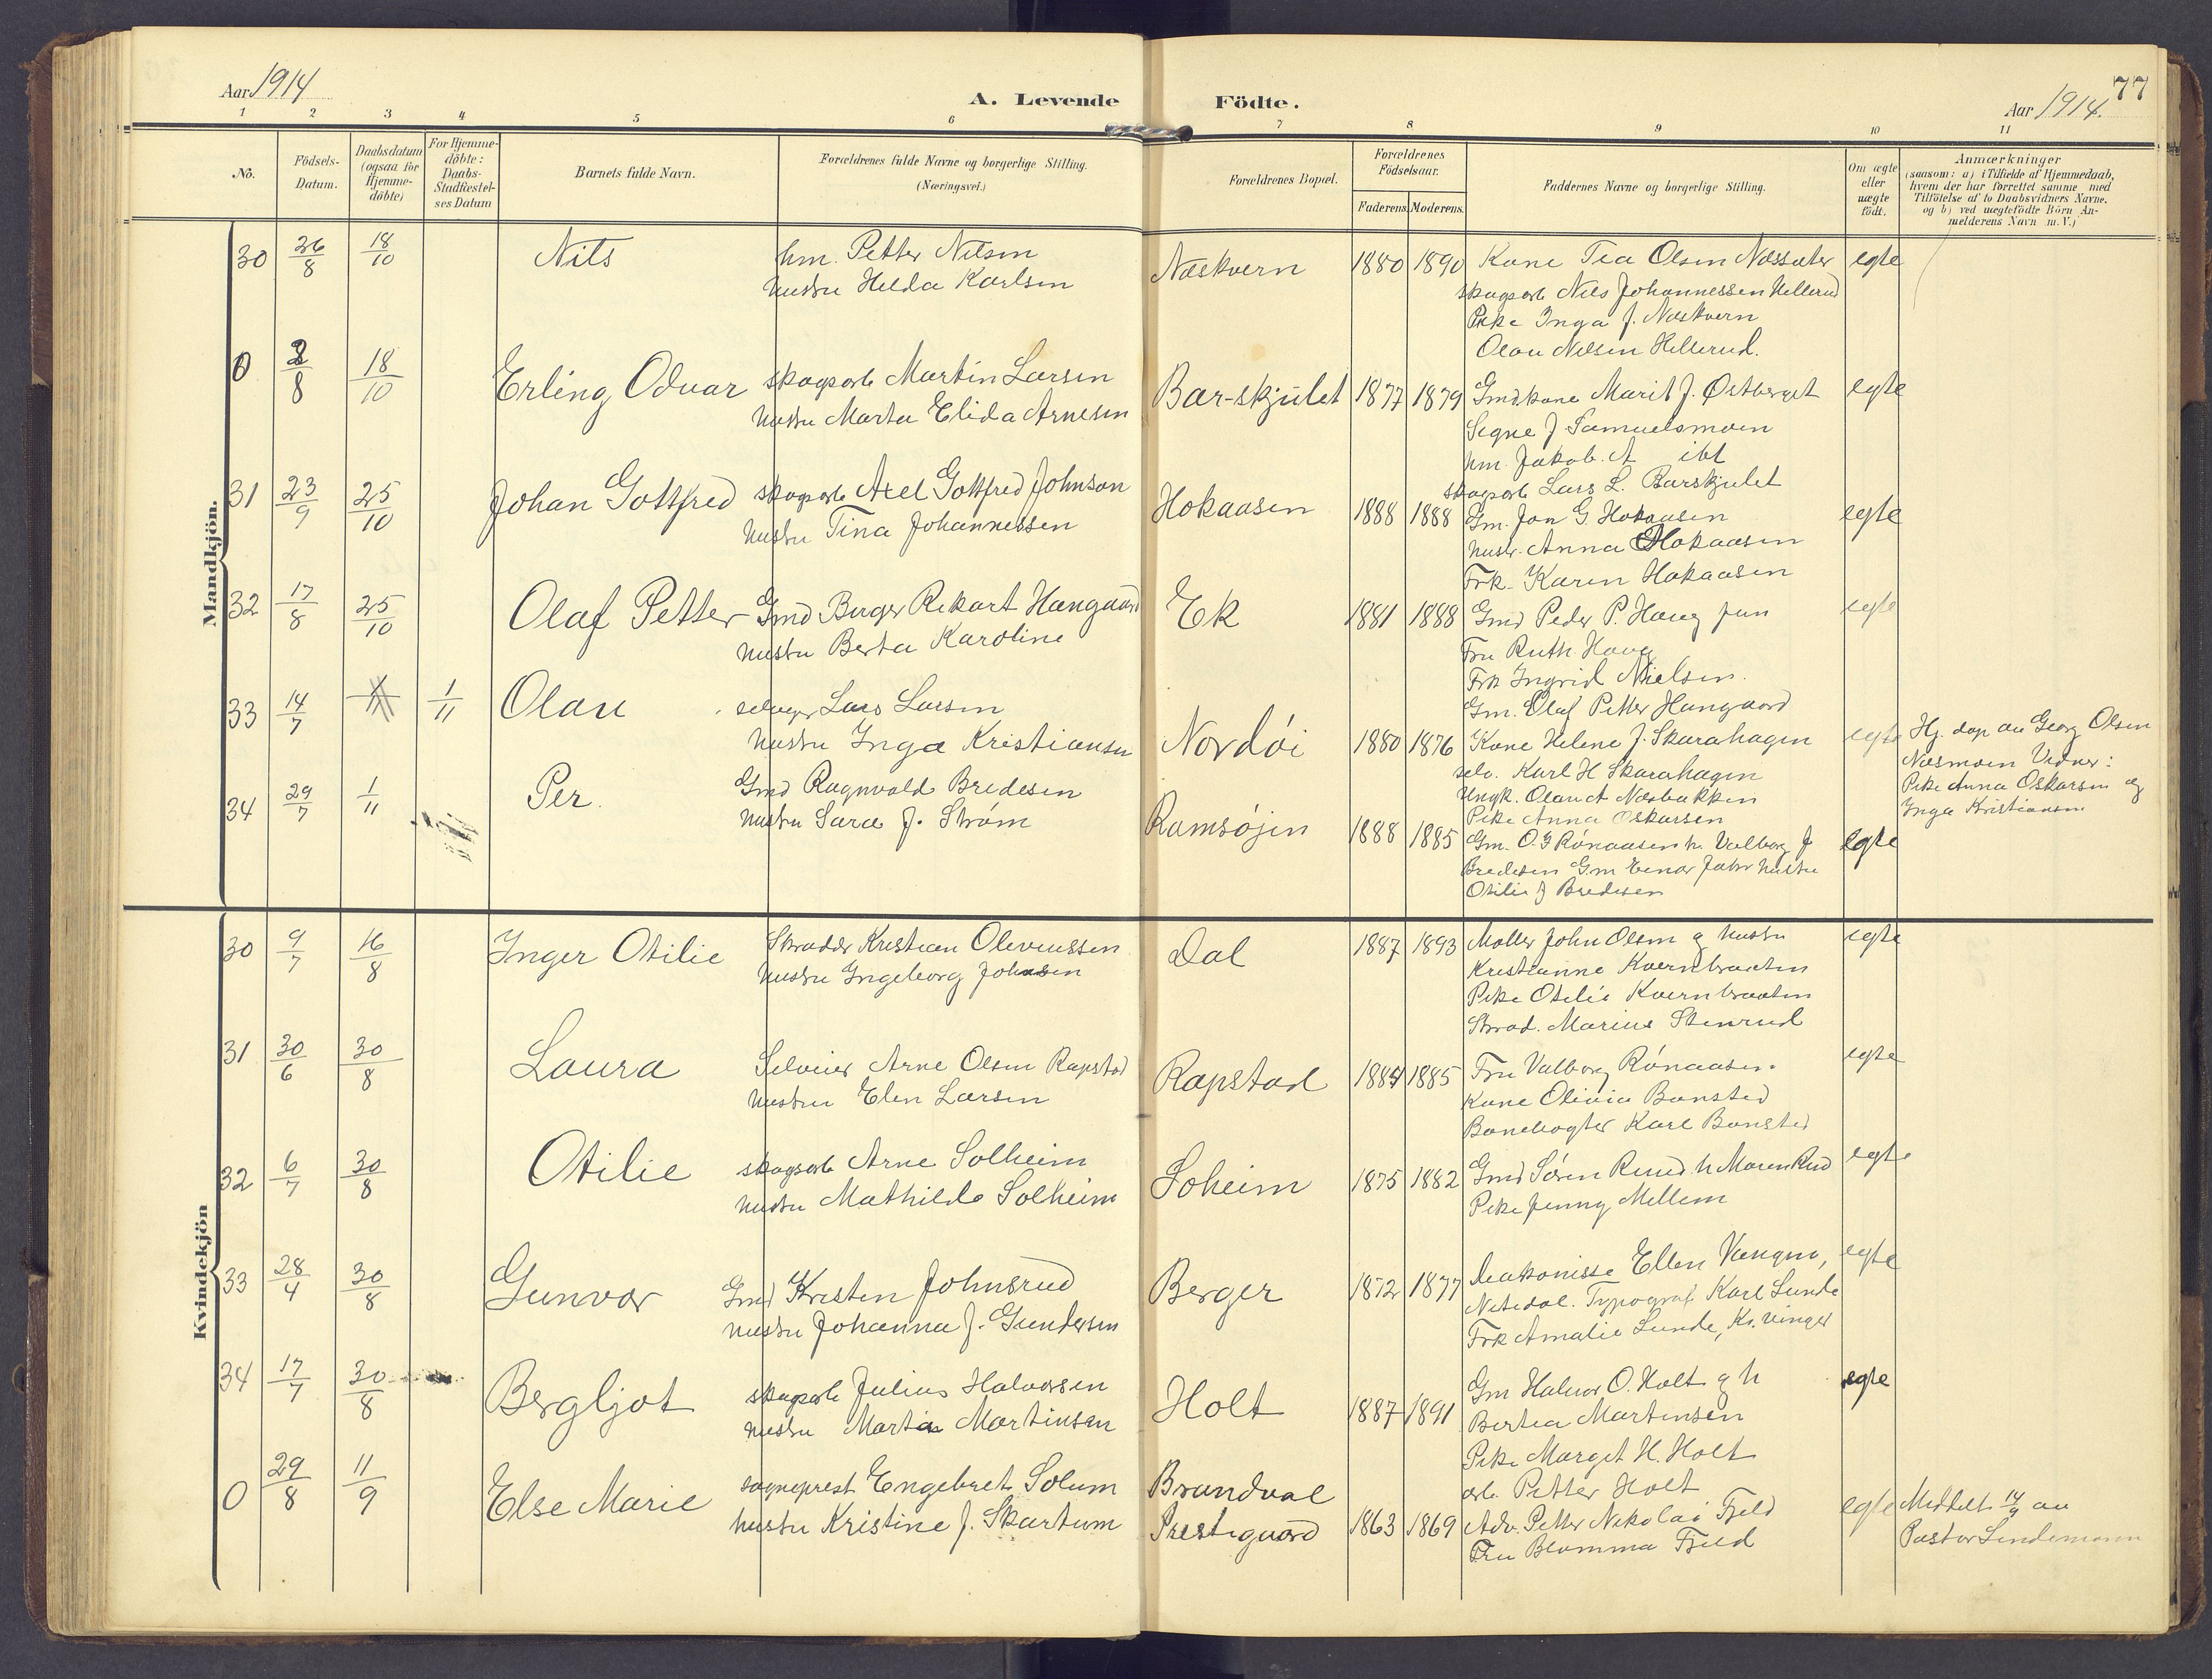 Aar 1914
A. Levende Födte.
Aar 1914.
77
1 2 3 4 5 6 7 8 9 10 11
No.
Födsels-Datum.
Daabsdatum (ogsaa for Hjemme-döbte)
For Hjemme-döbte: Daabs-Stadfæstel-ses Datum
Barnets fulde Navn.
Forældrenes fulde Navne og borgerlige Stilling.
(Næringsvei.)
Forældrenes Bopæl.
Forældrenes Födselsaar.
Faderens. Moderens.
Faddernes Navne og borgerlige Stilling.
Om ægte eller uægte födt.
Anmærkninger
(saasom: a) i Tilfælde af Hjemmedaab,
hvem der har forrettet samme med
Tilföielse af to Daabsvidners Navne.
og b) ved uægtefödte Börn An-
melderens Navn m.V.)
Mandkjön.
30 26/8 18/10 Nils
hm. Petter Nilsen
hustru Helda Karlsen
Næskvern 1880 1890
Kone Tea Olsen Næssæter
skogsarb Nils Johannessen Hellerud
Pike Inga J. Næskvern
Olav Nilsen Hellerud.
egte
0 2/8 18/10 Erling Odvar
skogsarb Martin Larsen
hustru Marta Elida Arnesen
Bær-skjulet 1877 1879
Gmdkone Marit J. Østberget
Signe J Samuelsmoen
hm. Jakob. A ibt
skogsarb Lars L. Bærskjulet
egte
31 23/9 25/10 Johan Gottfred
skogsarb Axel Gottfred Johnson
hustru Tina Johannessen
Hokaasen 1888 1888
Gm. Jon G. Hokaasen
hustr. Anna Hokaasen
Frk. Karen Hokaasen
egte
32 17/8 25/10 Olaf Petter
Gmd Birger Rikart Hangaard
hustru Berta Karoline
Ek 1881 1888
Gmd Peder P. Haug jun
Fru Ruth Haug
Frk Ingrid Nielsen.
Gm. Olaf Petter Hangaard
egte
33 14/7 1/11 Olau
selveger Lars Larsen
hustru Inga Kristiansen
Nordöi 1880 1876
Kone Helene J. Skarahagen
selv. Karl H Skarahagen
Ungk. Olau A Næsbakken
Pike Anna Oskarsen
egte
Hj. døp av Georg Olsen
Næsmoen Vidner:
Pike Anna Oskarsen og
Inga Kristiansen
34 29/7 1/11 Per.
Gmd Ragnvald Bredesen
hustru Sara J. Strøm
Ramsøjen 1888 1885
Gm. O. G Rönaasen h. Valborg J
Bredesen Gm Einar Jahr hustru
Otilie J Bredesen
egte
Kvindekjön
30 9/7 16/8 Inger Otilie
Skrædder Kristian Oliveussen
hustru Ingeborg Johnsen
Dal 1887 1893
Møller John Olsen og hustru
Kristianne Kvernbraaten
Pike Otilie Kvernbraaten
Skræd. Marius Stenrud
egte
31 30/6 30/8 Laura
Selveier Arne Olsen Rapstad
hustru Elen Larsen
Rapstad 1884 1885
Fru Valborg Rönaasen.
Kone Olivia Bansted
Banevogter Karl Bansted
egte
32 6/7 30/8 Otilie
skogsarb Arne Solheim
hustru Mathilde Solheim
Soheim 1875 1882
Gmd Sören Ruud h Maren Rud
Pike Jenny Mellem
egte
33 28/4 30/8 Gunvor
Gmd Kristen Johnsrud
hustru Johanna J. Gundersen
Berger 1872 1877
Diakonisse Ellen Vangmo,
Nitedal. Typograf Karl Lunde
Frk Amalie Lunde, Kr. vinger
egte
34 17/7 30/8 Bergljot
skogsarb Julius Halvorsen
hustru Martin Martinsen
Holt 1887 1891
Gm Halvor O. Holt og h
Bertea Martinsen
Pike Marget H. Holt
arb. Petter Holt
egte
0 29/8 11/9 Else Marie
sogneprest Engebret Solum
hustru Kristine J. Skartum
Brandval
Prestegaard 1863 1869
Adv. Petter Nikolai Fjeld
Fru Blomma Fjeld
egte
Meddelt 14/9 av
Pastor Lindemann